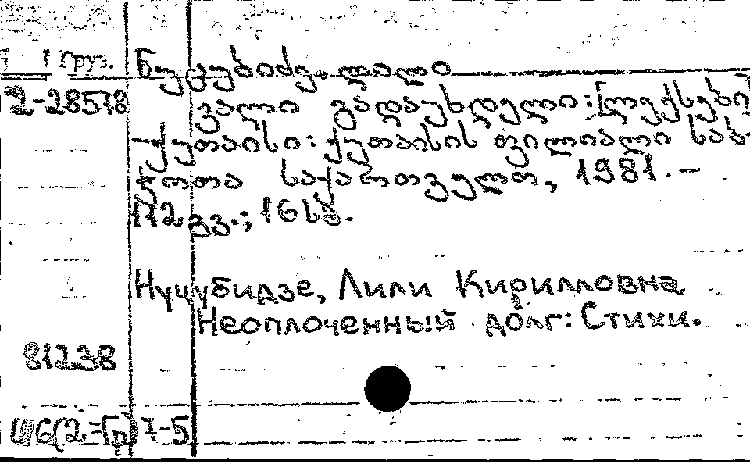 Груз. ნუცუბიძე ლილი
2-28578 ვალი გადაუხდელი: [ლექსები
ქუთაისი: ქუთაისის ფილიალი საბ-
ჭოთა საქართველო, 1981. -
112 გვ.; 16 სმ.
Нуцубидзе, Лили Кирилловна
Неоплоченный долг: Стихи.
81238
С(Гр)7-5